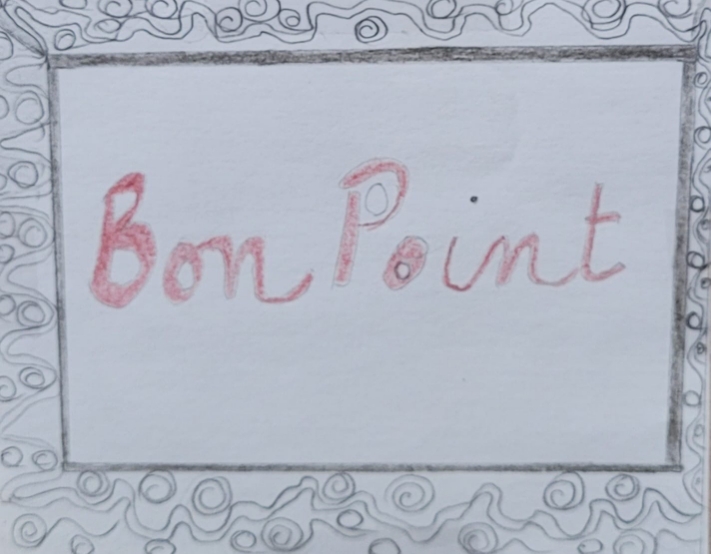 Bon Point